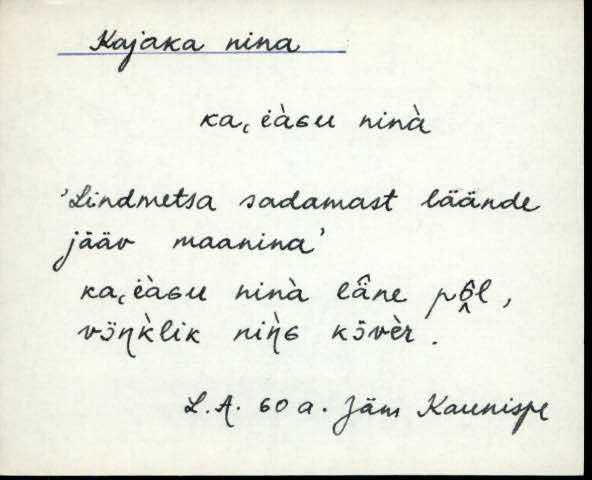 Kajaka nina
ka, i̮àɢu ninà
'Lindmetsa sadamast läände
jääv maanina'
ka, i̮àɢu ninà lä̂ne pô̭l,
vɔ̈ŋk̀lik niǹɢ kɔ̈vèr.
L.A. 60 a. Jäm Kaunispe